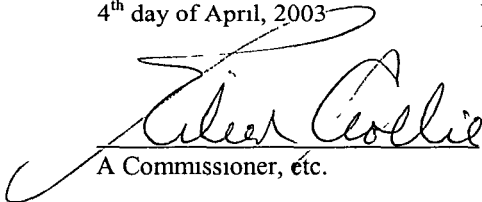 4th day of April, 2003
A Commissioner, etc.